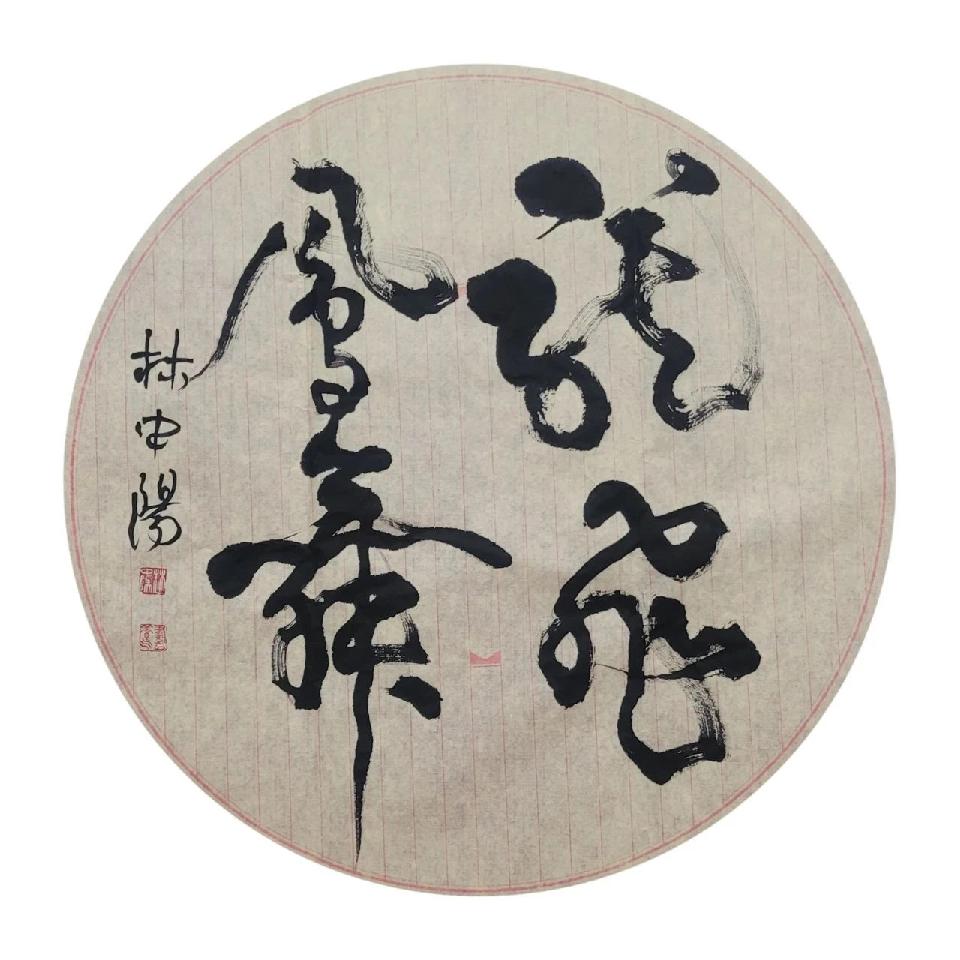 龍飛
鳳舞
林中陽